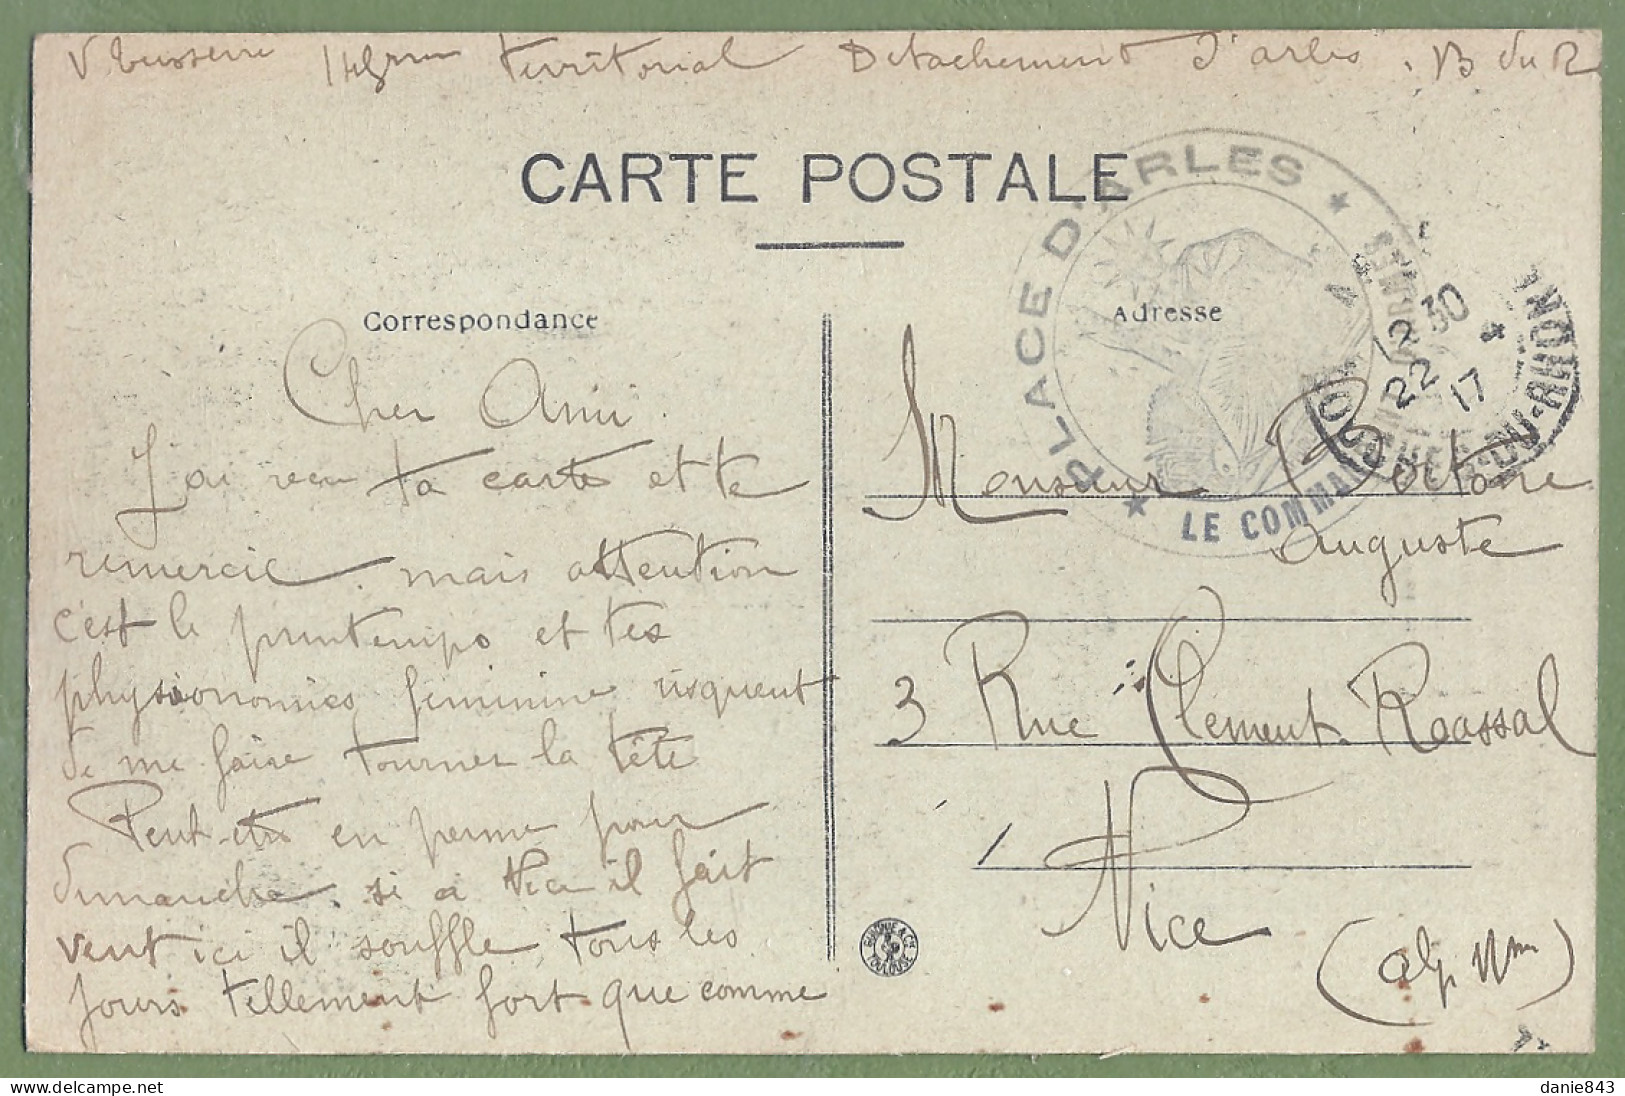 Territorial Detachement d'arles. B du R
CARTE POSTALE
Correspondance
Adresse
PLACE D'ARLES
LE COMMAN
12 30
22 4
17
DU-RHON
Cher Ami.
J'ai recu ta carte et te
remercie. mais attention
c'est le printemps et tes
physionomies feminine risquent
de me faire tourner la tête
Peut-etre en perme pour
dimanche. si a Nice il fait
vent ici il souffle tous les
jours tellement fort que comme
Monsieur
auguste
3 Rue Clement Roassal
Nice
(alp Mme)
TOULOUSE
danie843